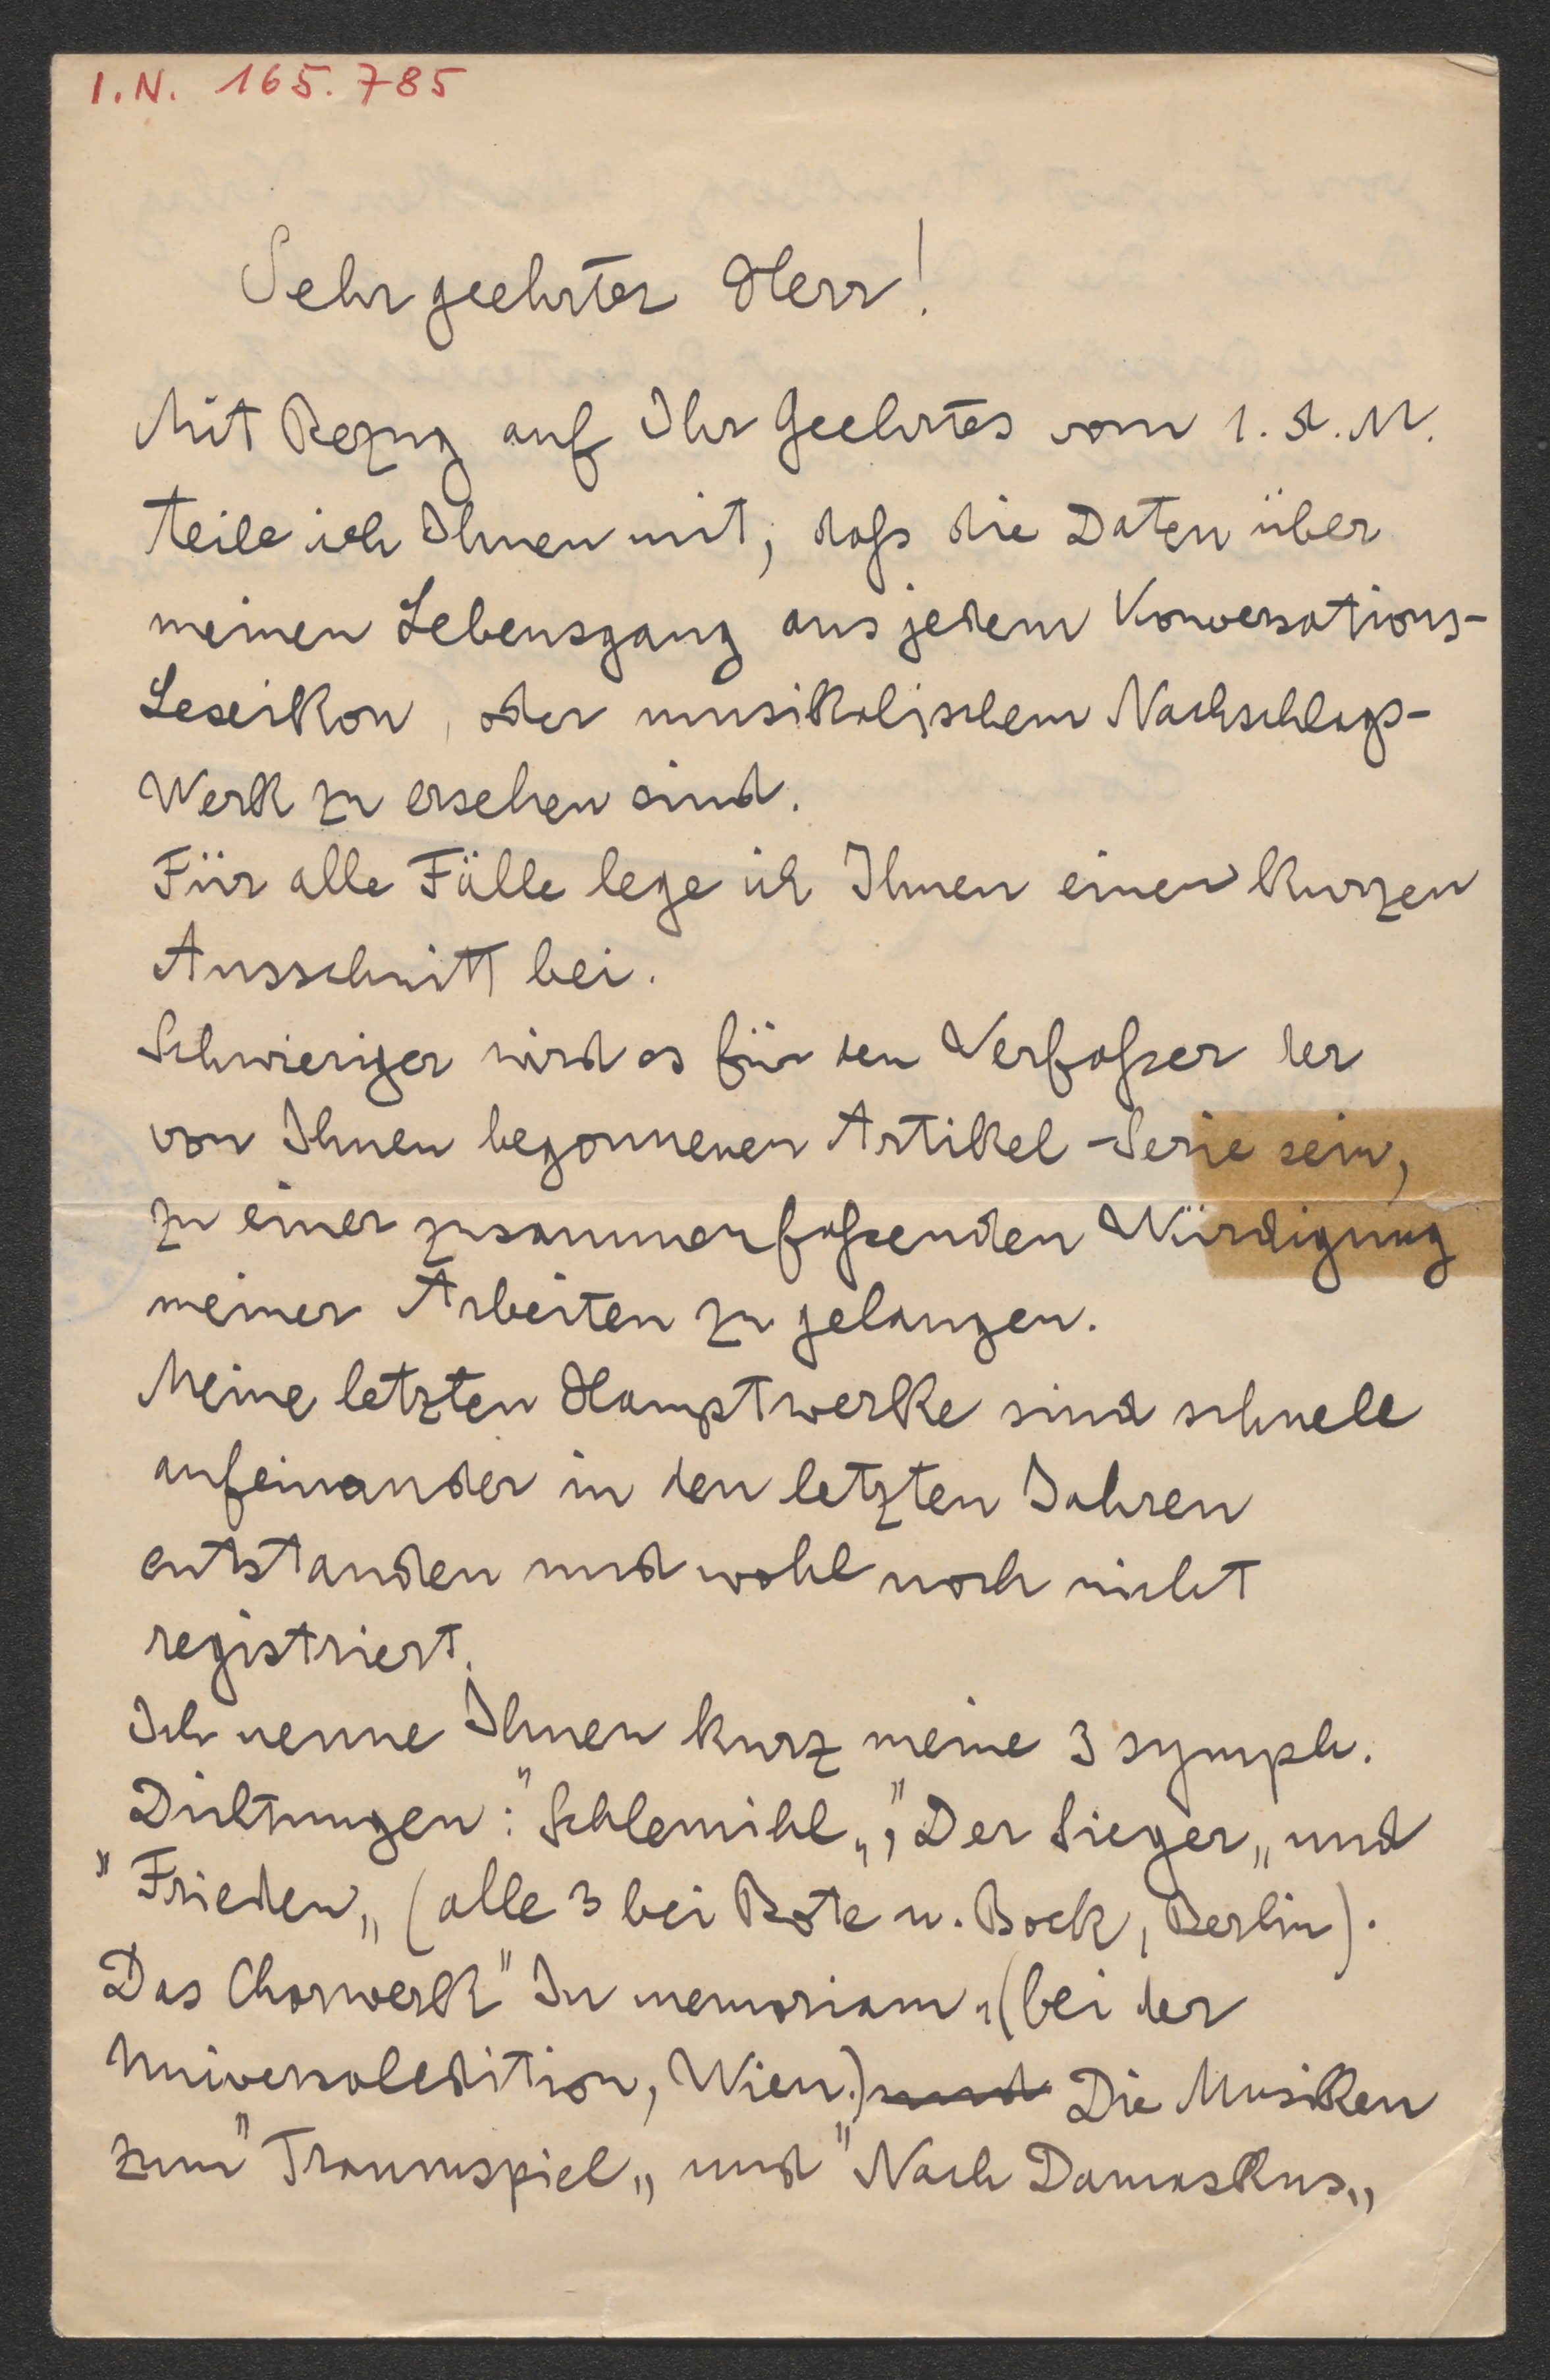 I.N. 165.785
Sehr geehrter Herr!
Mit Bezug auf Ihr Geehrtes vom 1. d. M.
teile ich Ihnen mit, daſs die Daten über
meinen Lebensgang aus jedem Konversations-
Lexikon, oder musikalischem Nachschlags-
Werk zu ersehen sind.
Für alle Fälle lege ich Ihnen einen kurzen
Ausschnitt bei.
Schwieriger wird es für den Verfaſser der
von Ihnen begonnenen Artikel-Serie sein,
zu einer zusammenfaſsenden Würdigung
meiner Arbeiten zu gelangen.
Meine letzten Hauptwerke sind schnell
aufeinander in den letzten Jahren
entstanden und wohl noch nicht
registriert.
Ich nenne Ihnen kurz meine 3 symph.
Dichtungen: "Schlemihl„, "Der Sieger„ und
"Frieden„ (alle 3 bei Bote u. Bock, Berlin).
Das Chorwerk "In memoriam„ (bei der
Universaledition, Wien.) und Die Musiken
zum "Traumspiel„ und "Nach Damaskus„